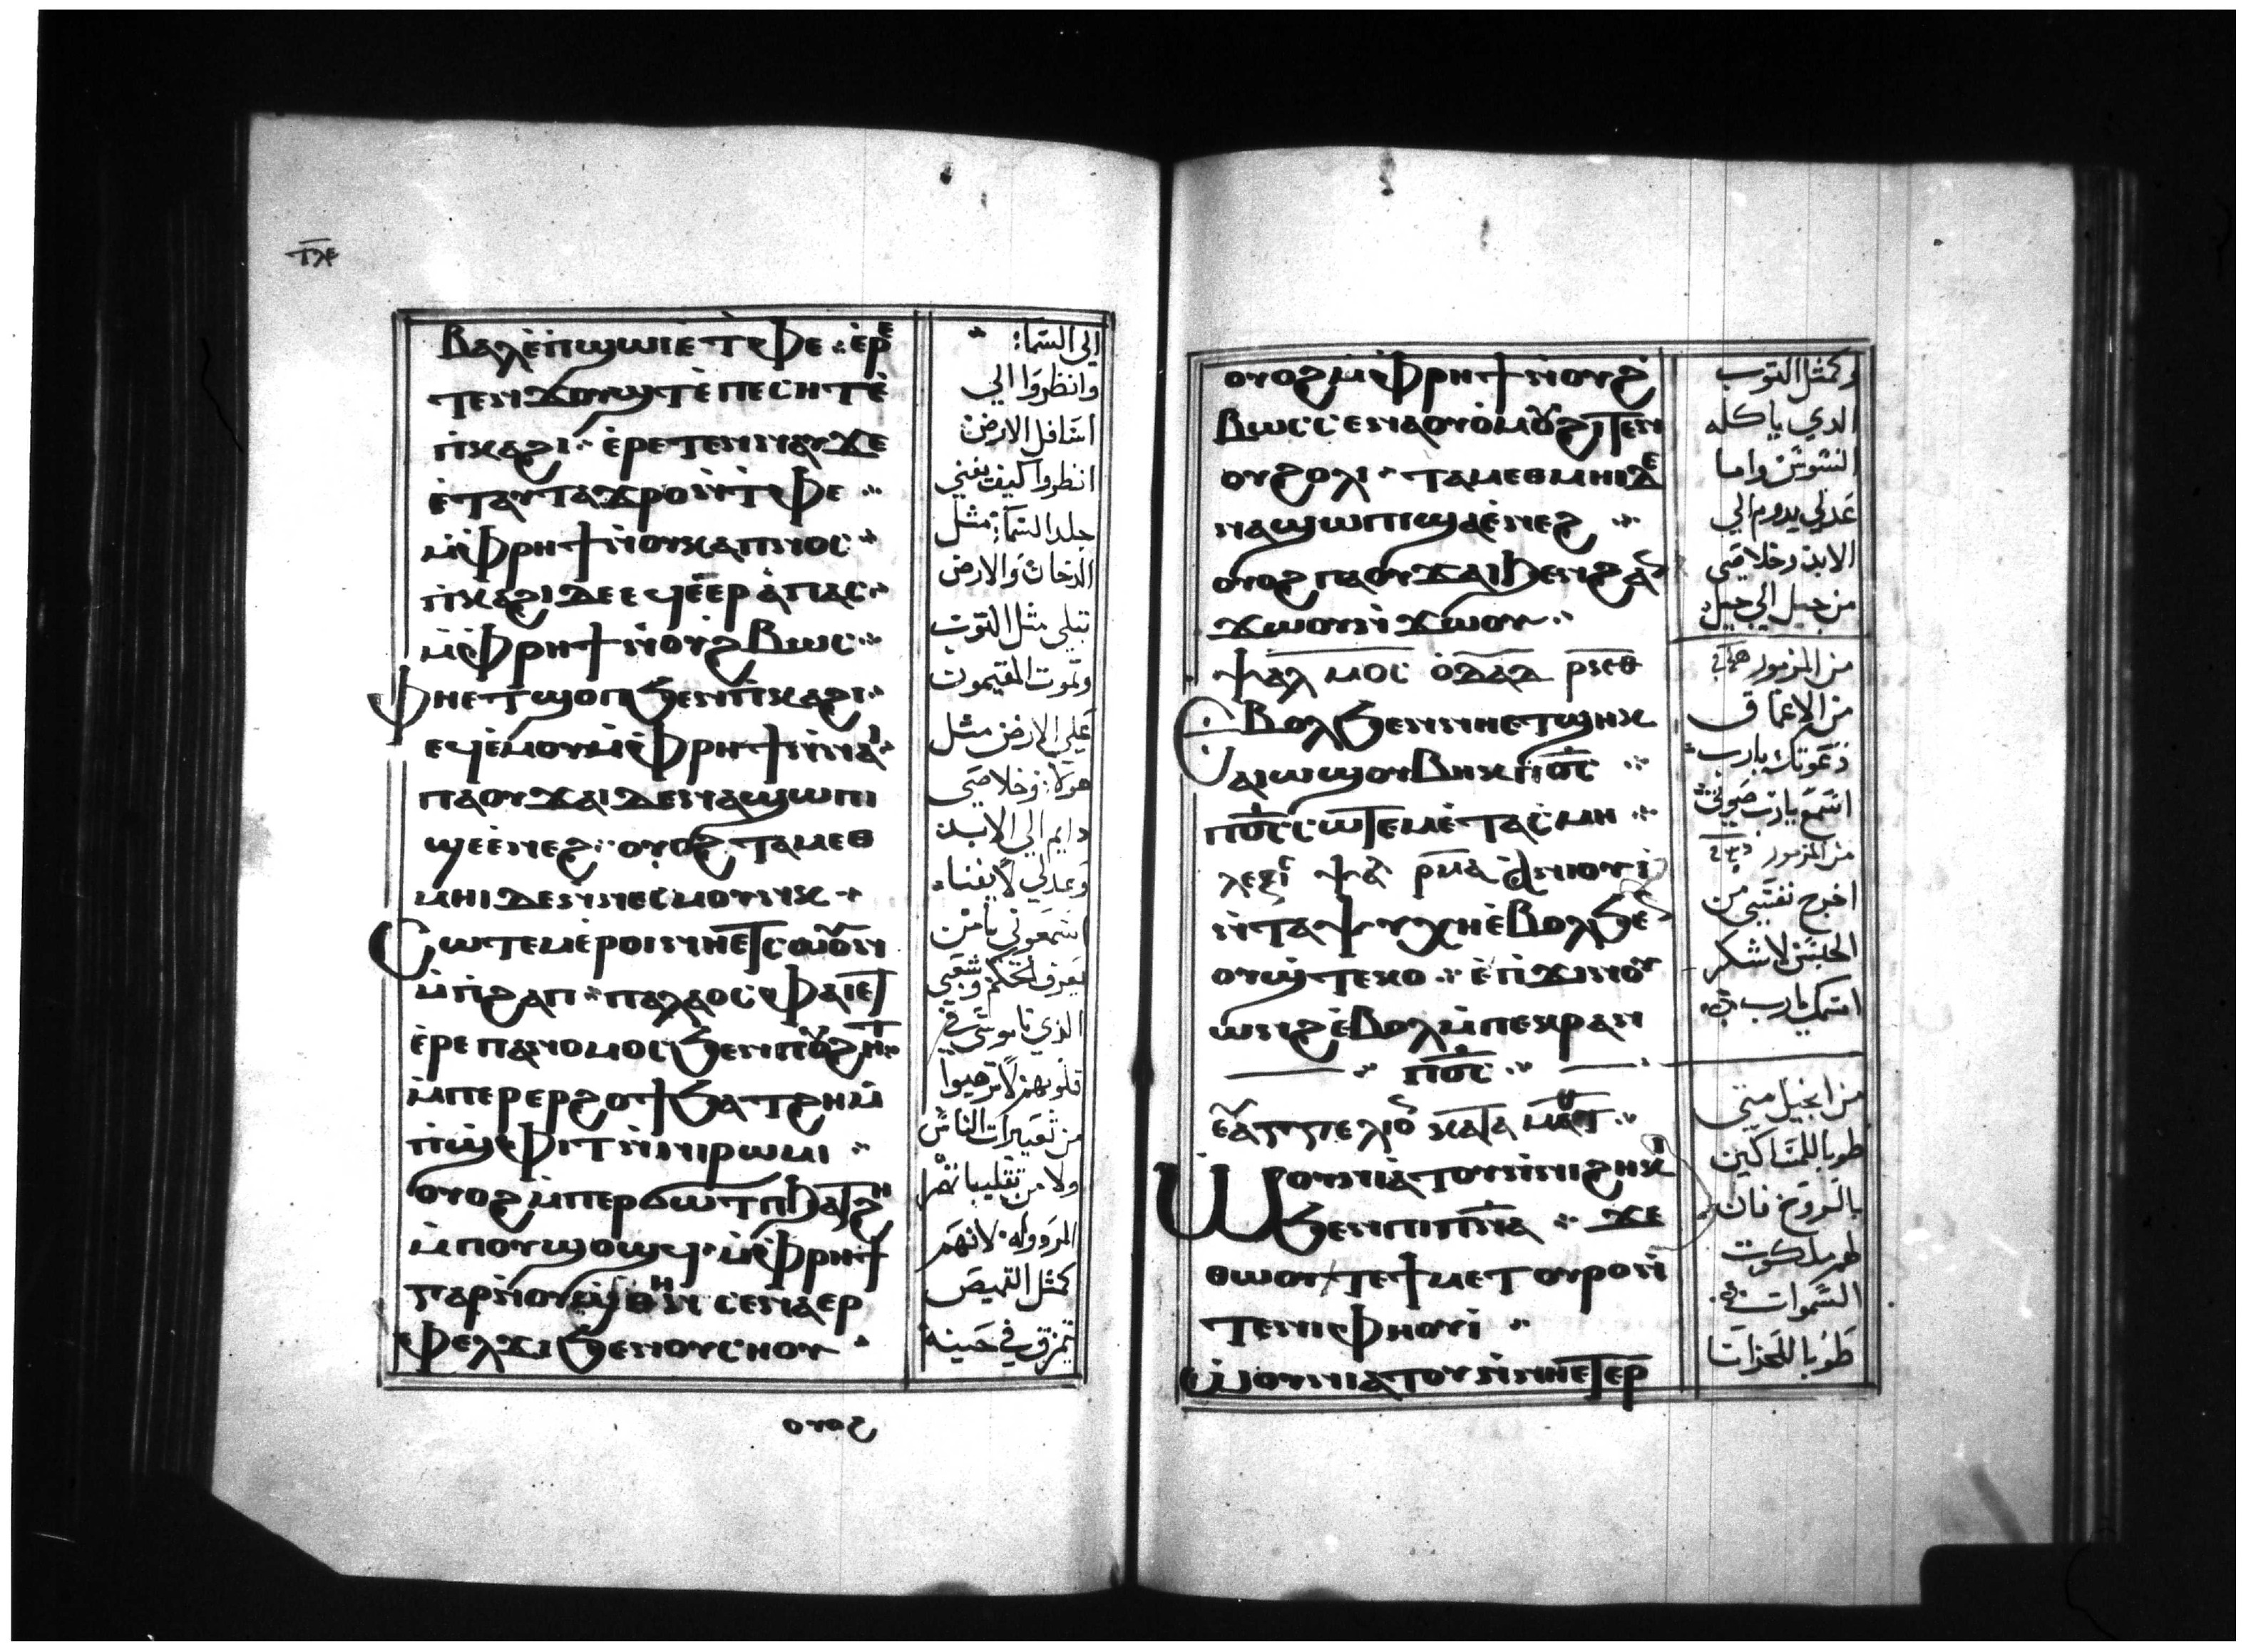 ⲧⲗⲉ
ⲃⲁⲗ ⲉ̀ⲡϣⲱⲓ ⲉ̀ⲧⲫⲉ ⁘ ⲉ̀ⲣⲉ
ⲧⲉⲛϫⲟⲩϣⲧ ⲉ̀ⲡⲉⲥⲏⲧ ⲉ̀
ⲡ̀ⲕⲁϩⲓ ⁘ ⲉ̀ⲣⲉⲧⲉⲛⲛⲁⲩ ϫⲉ
ⲉ̀ⲧⲁⲩⲧⲁϫⲣⲟ ⲛ̀ⲧ̀ⲫⲉ ⁘
ⲙ̀ⲫⲣⲏϯ ⲛ̀ⲟⲩⲕⲁⲡⲛⲟⲥ ⁘
ⲡ̀ⲕⲁϩⲓ ⲇⲉ ⲉϥⲉ̀ⲉⲣⲁ̀ⲡⲁⲥ ⁘
ⲙ̀ⲫⲣⲏϯ ⲛ̀ⲟⲩϩⲃⲱⲥ ⁘
ⲫⲏⲉⲧϣⲟⲡ ϧⲉⲛ ⲡ̀ⲕⲁϩⲓ ⁘
ⲉϥⲉ̀ⲙⲟⲩ ⲙ̀ⲫⲣⲏϯ ⲛ̀ⲛⲁⲓ ⁘
ⲡⲁⲟⲩϫⲁⲓ ⲇⲉ ⲛⲁϣⲱⲡⲓ
ϣⲉⲉ̀ⲛⲉϩ ⁘ ⲟⲩⲟϩ ⲧⲁⲙⲉⲑ
ⲙⲏⲓ ⲇⲉ ⲛ̀ⲛⲉⲥⲙⲟⲩⲛⲕ ⁘
ⲥⲱⲧⲉⲙ ⲉ̀ⲣⲟⲓ ⲛⲏⲉⲧⲥⲱⲟⲩⲛ
ⲙ̀ⲡ̀ϩⲁⲡ ⁘ ⲡⲁⲗⲁⲟⲥ ⲫⲁⲓⲉⲧ
ⲉ̀ⲣⲉ ⲡⲁⲛⲟⲙⲟⲥ ϧⲉⲛ ⲡⲟⲩϩⲏⲧ ⁘
ⲙ̀ⲡⲉⲣⲉⲣϩⲟϯ ϧⲁⲧϩⲏ ⲙ̀
ⲡ̀ϣⲫⲓⲧ ⲛ̀ⲛⲓⲣⲱⲙⲓ ⁘
ⲟⲩⲟϩ ⲙ̀ⲡⲉⲣϭⲱⲧⲡ ϧⲁⲧϩⲏ
ⲙ̀ⲡⲟⲩϣⲟϣϥ ⁘ ⲙ̀ⲫⲣⲏϯ
ⲅⲁⲣ ⲛ̀ⲟⲩϣⲑⲏⲛ ⲥⲉⲛⲁⲉⲣ
ⲫⲉⲗϫⲓ ϧⲉⲛ ⲟⲩⲥⲏⲟⲩ ⁘
ⲟⲩⲟϩ
الي السما:
وانظروا الي
اسافل الارض
انظروا كيف يفني
جلد السما: مثل
الدخان والارض
تبلي مثل التوب
وتموت المقيمون
علي الارض مثل
هولا: وخلاصي
دايم الي الابد
وعدلي لا يفنا
اسمعوني يا من
يعرف الحكم وشعبي
الذي ناموسي في
قلوبهم لا ترهبوا
من تعييرات الناس
ولا من
لانهم
كمثل القميص
تمزق في حينه
ⲟⲩⲟϩ ⲙ̀ⲫⲣⲏϯ ⲛ̀ⲟⲩϩ
ⲃⲱⲥ ⲥⲉⲛⲁⲟⲩⲟ̀ⲙⲟⲩ ϩⲓⲧⲉⲛ
ⲟⲩϩⲟⲗⲓ ⁘ ⲧⲁⲙⲉⲑⲙⲏⲓ ⲇⲉ
ⲛⲁϣⲱⲡⲓ ϣⲁⲉ̀ⲛⲉϩ ⁘
ⲟⲩⲟϩ ⲡⲁⲟⲩϫⲁⲓ ϧⲉⲛ ϩⲁⲛ
ϫⲱⲟⲩ ⲛ̀ϫⲱⲟⲩ ⁘
ⲯⲁⲗⲙⲟⲥ ⲟ̀ⲇⲁⲇ ⲣⲕⲑ
ⲉⲃⲟⲗ ϧⲉⲛ ⲛⲏⲉⲧϣⲏⲕ
ⲁⲓⲱϣ ⲟⲩⲃⲏⲕ ⲡ̀ⲟ̅ⲥ̅ ⁘
ⲡ̀ⲟ̅ⲥ̅ ⲥⲱⲧⲉⲙ ⲉ̀ⲧⲁⲥⲙⲏ ⁘
ⲗⲉⲝⲓⲥ ⲯⲁ ⲣⲙⲁ ⲁ̀ⲛⲓⲟⲩⲓ̀
ⲛ̀ⲧⲁⲯⲩⲭⲏ ⲉ̀ⲃⲟⲗ ϧⲉⲛ
ⲟⲩϣⲧⲉⲕⲟ ⁘ ⲉ̀ⲡ̀ϫⲓⲛⲟⲩ
ⲱⲛϩ ⲉ̀ⲃⲟⲗ ⲙ̀ⲡⲉⲕⲣⲁⲛ
⁘ ⲡ̀ⲟ̅ⲥ̅ ⁘
ⲉⲩⲁⲅⲅⲉⲗⲓⲟⲛ ⲕⲁⲧⲁ ⲙⲁⲧ ⁘
ⲱⲟⲩⲛⲓⲁ̀ⲧⲟⲩ ⲛ̀ⲛⲓϩⲏⲕⲓ
ϧⲉⲛ ⲡⲓⲡ̅ⲛ̅ⲁ̅ ⁘ ϫⲉ
ⲑⲱⲟⲩ ⲧⲉ ϯⲙⲉⲧⲟⲩⲣⲟ ⲛ̀
ⲧⲉ ⲛⲓⲫⲏⲟⲩⲓ̀ ⁘
ⲱⲟⲩⲛⲓⲁ̀ⲧⲟⲩ ⲛ̀ⲛⲏⲉⲧⲉⲣ
وكمثل التوب
الدي ياكله
السوس واما
عدلي يدوم الي
الابد وخلاصي
من جيل الي جيل
من المزمور
من الاعماق
دعوتك يارب
استمع يارب صوتي
من المزمور
اخرج نفسي من
الحبس لاشكر
اسمك يارب
من انجيل متي
طوبا للمساكين
بالروح فان
لهم ملكوت
السموات
طوبا للحزانا